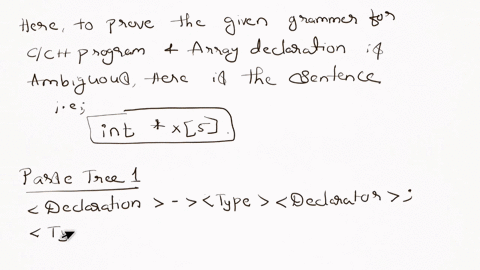 Here, to prove the given grammer for
C/C++ program & Array declaration is
Ambiguous, Here is the Sentence
i.e;
int *x[5].
Parse Tree 1
< Declaration > -> <Type> <Declarator>;
< Ty